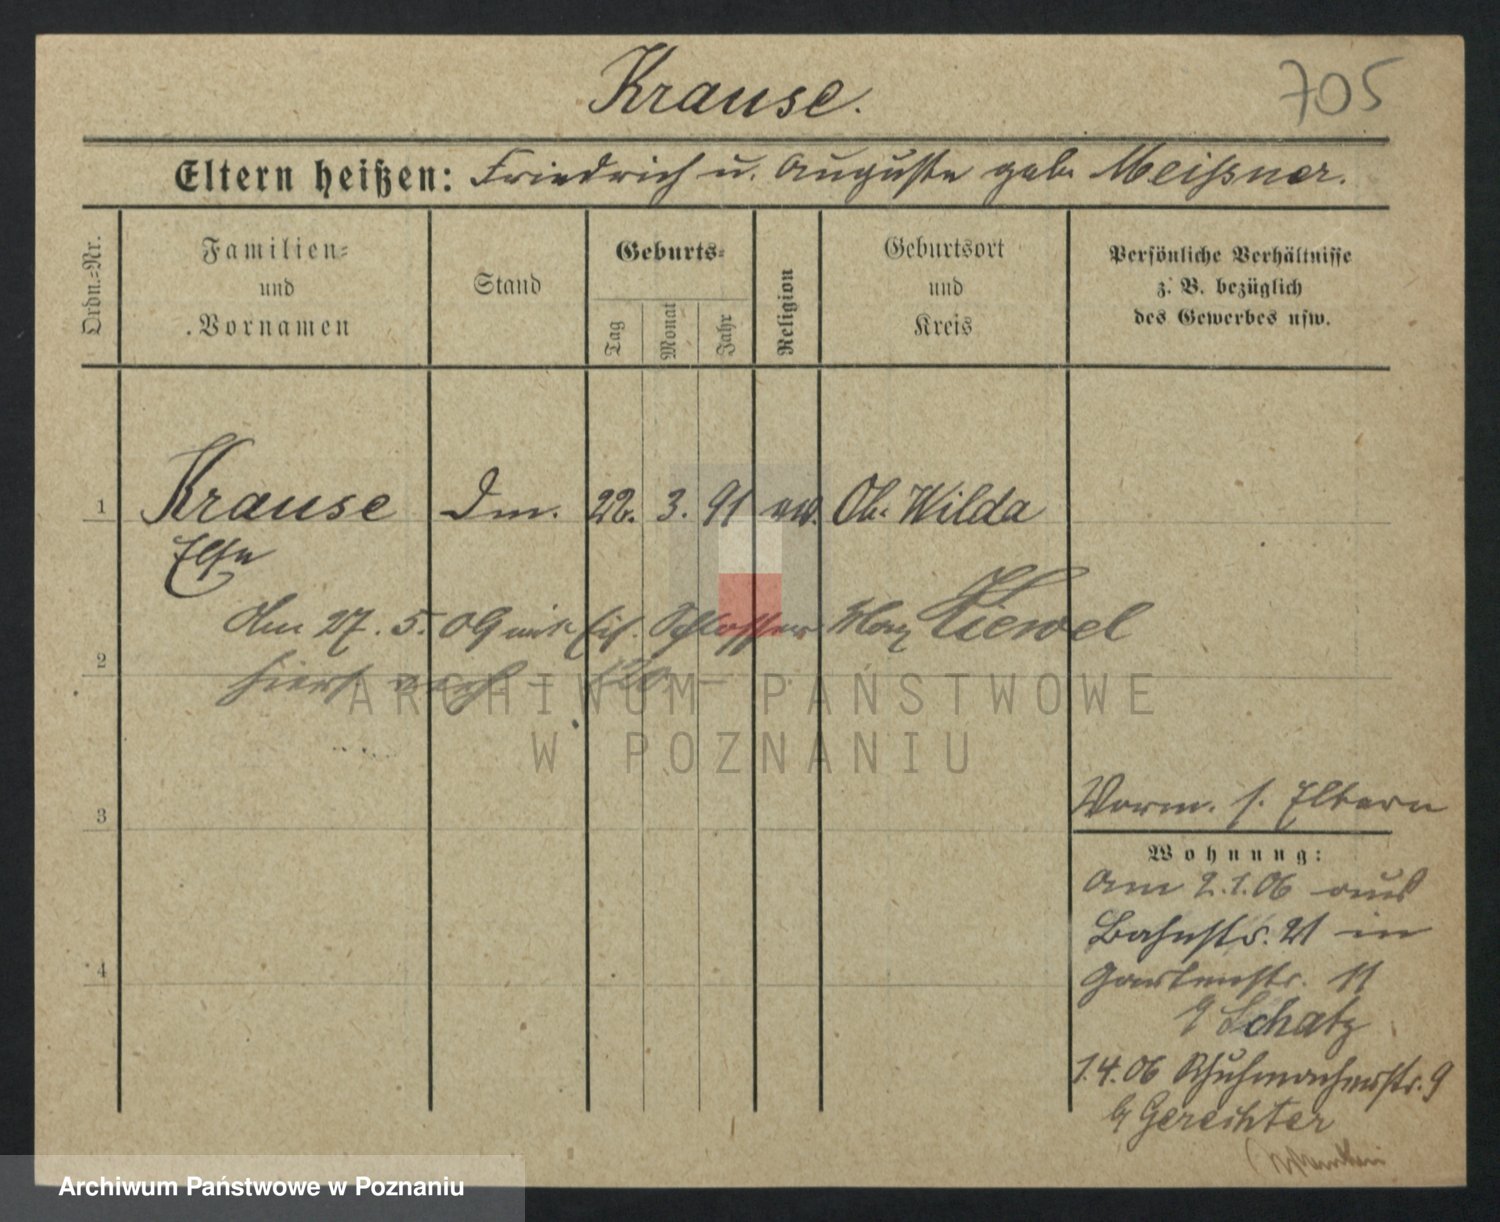 Krause.
705
Eltern heißen: Friedrich u. Auguste geb. Meißner.
Ordn.=Nr.
Familien=
und
Vornamen
Stand
Geburts=
Tag
Monat
Jahr
Religion
Geburtsort
und
Kreis
Persönliche Verhältnisse
z. B. bezüglich
des Gewerbes usw.
1 Krause Dm. 22. 3. 91 ev. Ob. Wilda
Else
Am 27. 5. 09 mit Schlosser Max Kiewel
2 hier
ARCHIWUM PAŃSTWOWE
W POZNANIU
3
Vorm. s. Eltern
Wohnung:
Am 2.1.06 aus
Bahnstr. 21 in
Gartenstr. 11
4
b/ Schatz
1.4.06 Schuhmacherstr. 9
b/ Gerechter
Archiwum Państwowe w Poznaniu